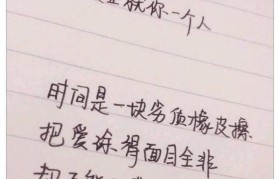 就你一个人
时间是一块劣质橡皮擦
把爱涂得面目全非
却不能